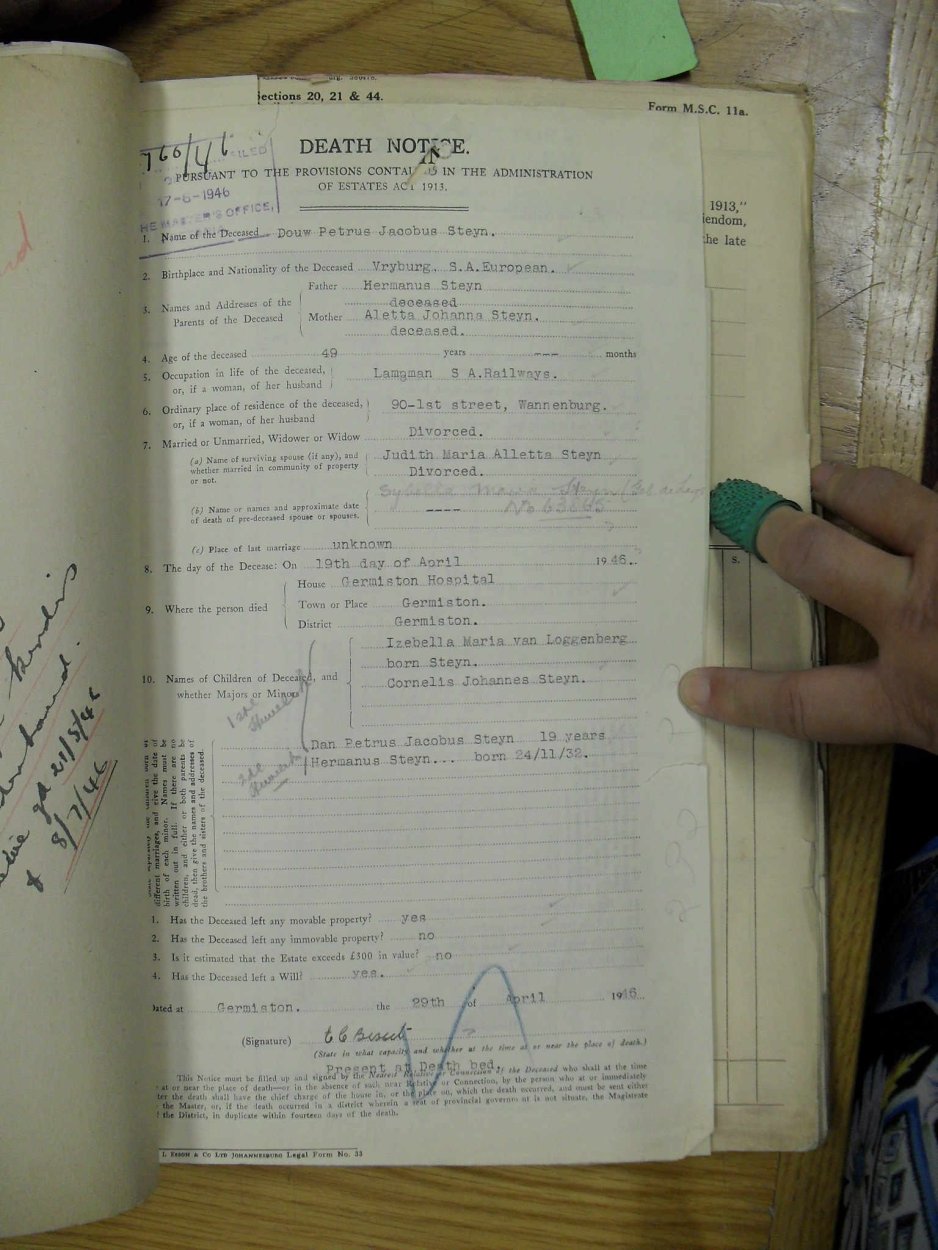 Sections 20, 21 & 44.
Form M.S.C. 11a.
766/46
FILED
17-6-1946
THE MASTER'S OFFICE,
DEATH NOTICE.
IN
PURSUANT TO THE PROVISIONS CONTAINED IN THE ADMINISTRATION
OF ESTATES ACT 1913.
1913,"
iendom,
the late
S.
1. Name of the Deceased Douw Petrus Jacobus Steyn.
2. Birthplace and Nationality of the Deceased Vryburg. S.A.European.
3. Names and Addresses of the Parents of the Deceased
Father Hermanus Steyn
deceased
Mother Aletta Johanna Steyn.
deceased.
4. Age of the deceased 49 years --- months
5. Occupation in life of the deceased, or, if a woman, of her husband Lamgman S A.Railways.
6. Ordinary place of residence of the deceased, or, if a woman, of her husband 90-1st street, Wannenburg.
7. Married or Unmarried, Widower or Widow Divorced.
(a) Name of surviving spouse (if any), and whether married in community of property or not. Judith Maria Alletta Steyn
Divorced.
Sybella Maria Steyn
No 63645
(b) Name or names and approximate date of death of pre-deceased spouse or spouses. ----
(c) Place of last marriage unknown
8. The day of the Decease: On 19th day of April 1946.
9. Where the person died
House Germiston Hospital
Town or Place Germiston.
District Germiston.
10. Names of Children of Deceased, and whether Majors or Minors
Izebella Maria van Loggenberg
born Steyn.
Cornelis Johannes Steyn.
1ste Huwelik
Dan Petrus Jacobus Steyn 19 years
Hermanus Steyn... born 24/11/32.
2de Huwelik
different marriages, and give the date of
birth of each minor. Names must be
written out in full. If there are no
children, and either or both parents be
dead, then give the names and addresses of
the brothers and sisters of the deceased.
1. Has the Deceased left any movable property? yes
2. Has the Deceased left any immovable property? no
3. Is it estimated that the Estate exceeds £300 in value? no
4. Has the Deceased left a Will? yes.
Dated at Germiston. the 29th of April 1946
(Signature)
(State in what capacity and whether at the time at or near the place of death.)
Present at Death bed.
This Notice must be filled up and signed by the Nearest Relative or Connection of the Deceased who shall at the time
at or near the place of death—or in the absence of such near Relative or Connection, by the person who at or immediately
ter the death shall have the chief charge of the house in, or the place on, which the death occurred, and must be sent either
the Master, or, if the death occurred in a district wherein a seat of provincial government is not situate, the Magistrate
f the District, in duplicate within fourteen days of the death.
L ESSON & CO LTD JOHANNESBURG Legal Form No. 33
21/5/46
8/7/46